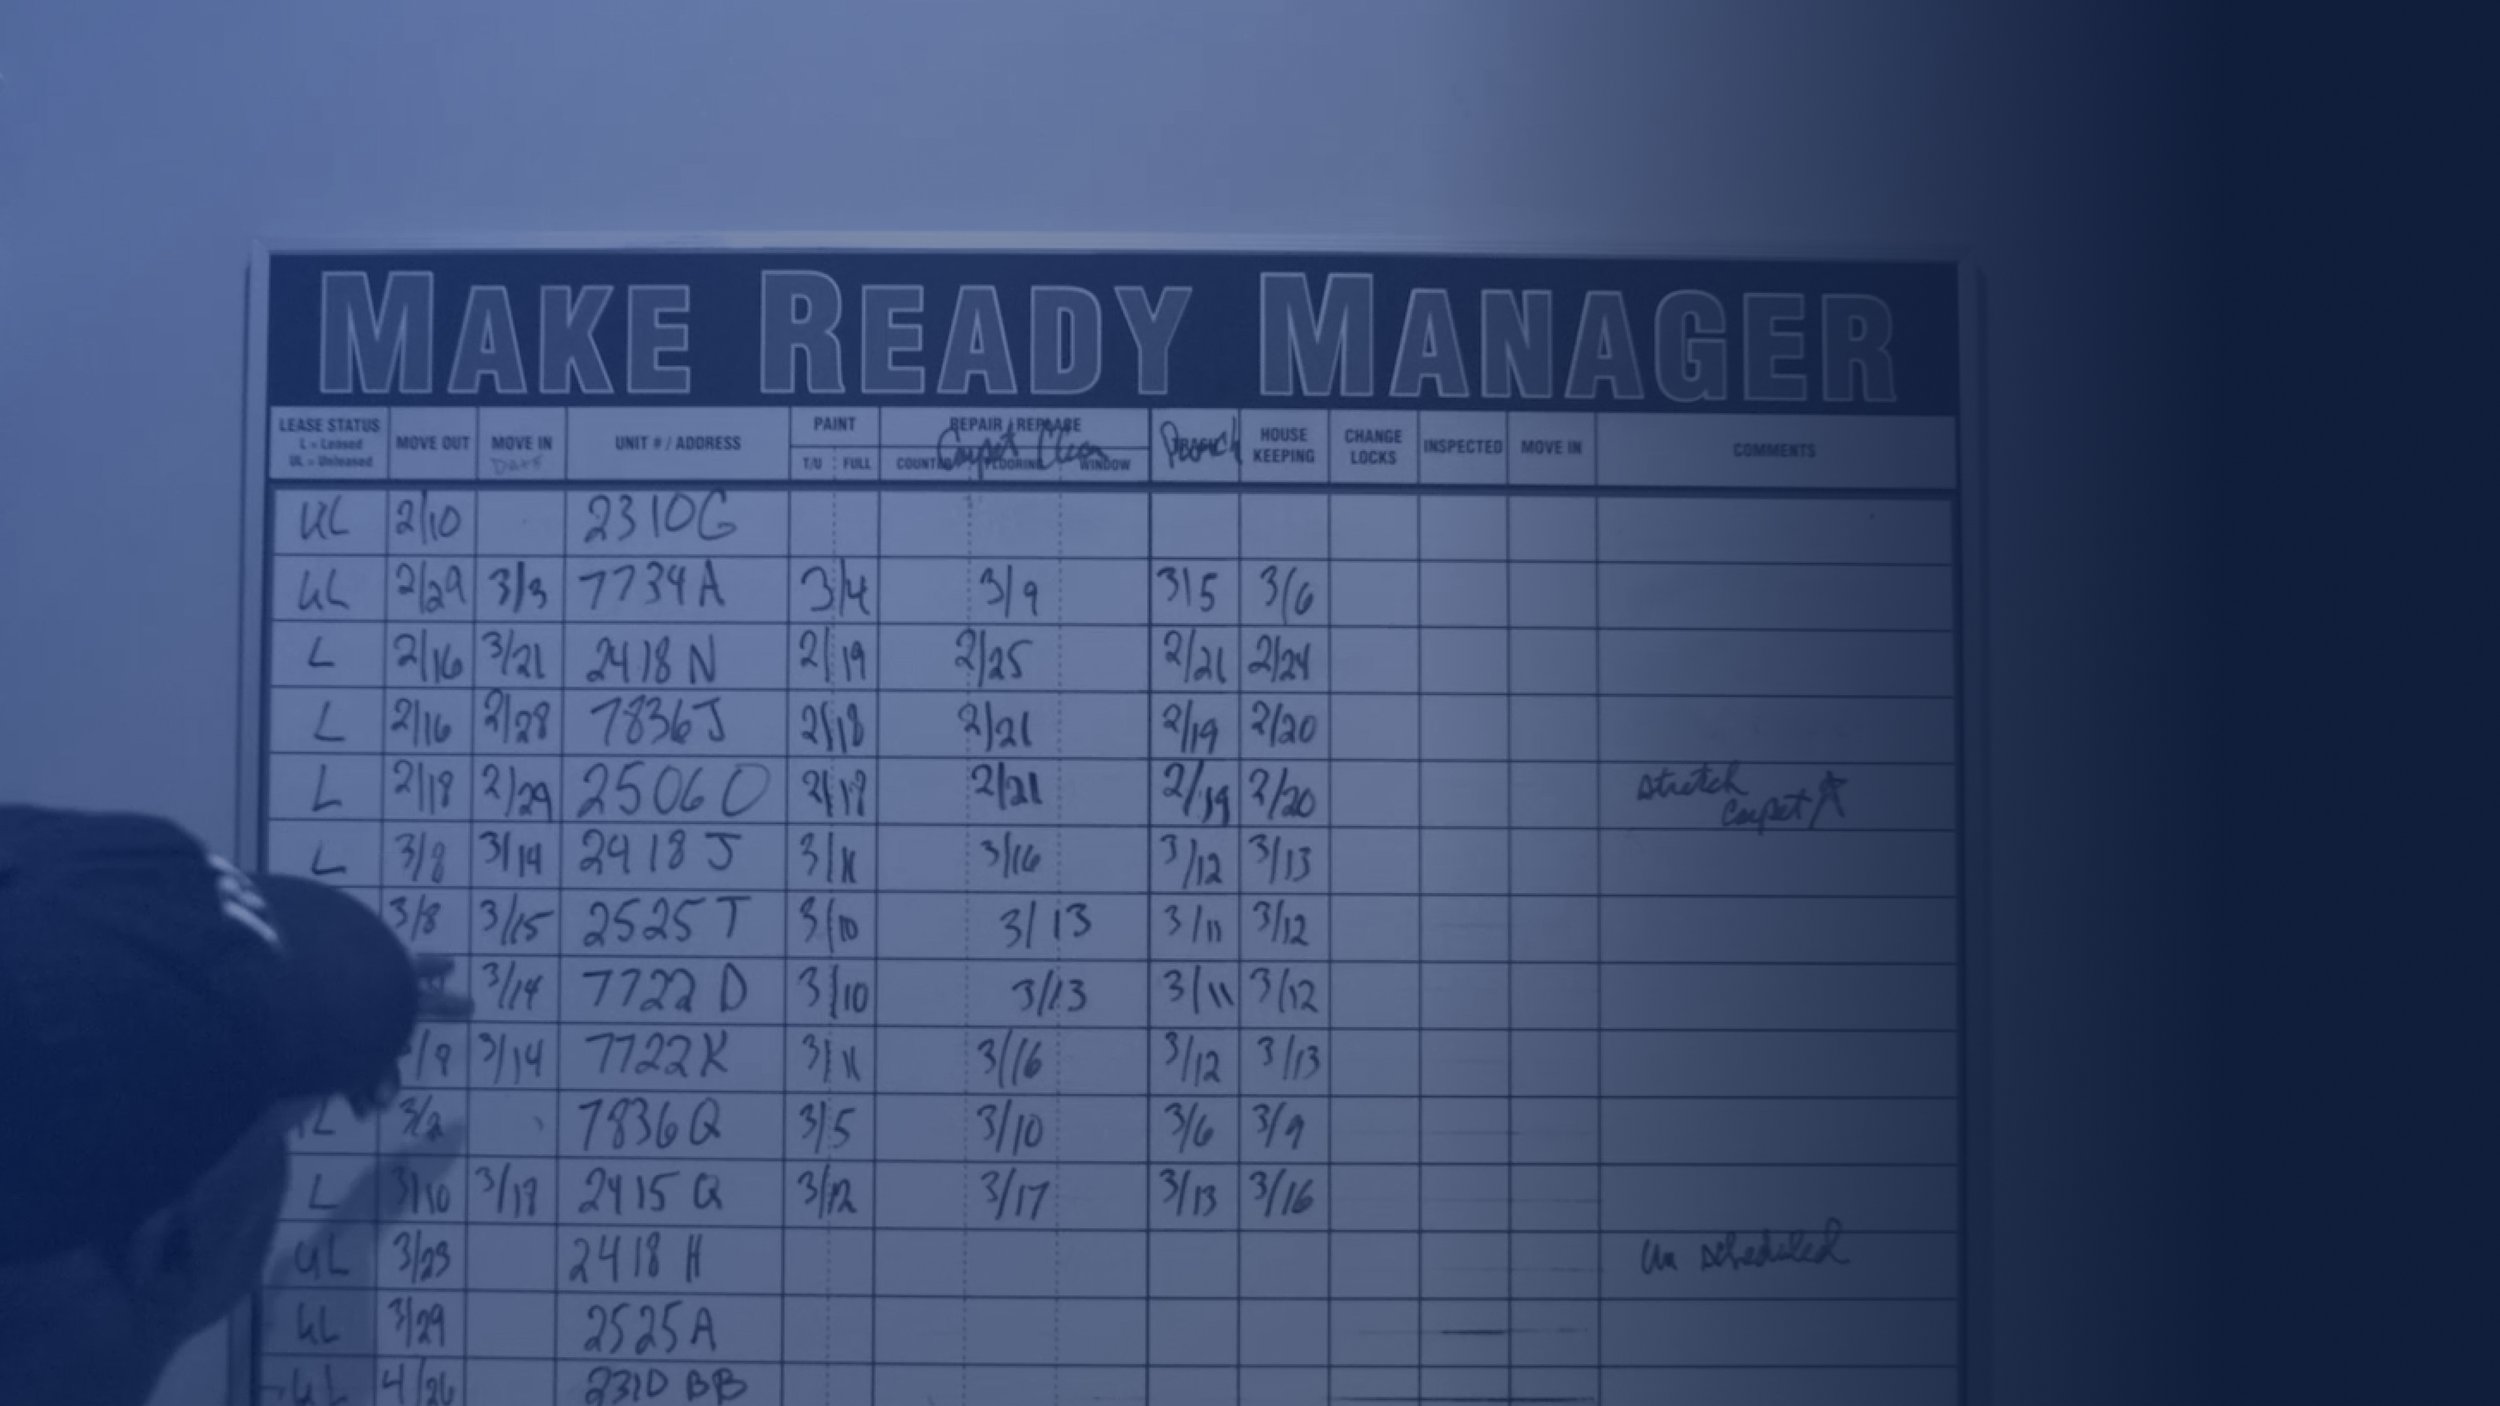 MAKE READY MANAGER
LEASE STATUS
L = Leased
UL = Unleased
MOVE OUT
MOVE IN
DATE
UNIT # / ADDRESS
PAINT
T/U FULL
REPAIR / REPLACE
Carpet Clean
FLOORING WINDOW
HOUSE KEEPING
CHANGE LOCKS
INSPECTED
MOVE IN
COMMENTS
UL 2/10 2310G
UL 2/29 3/3 7734 A 3/4 3/9 3/5 3/6
L 2/16 3/21 2418 N 2/19 2/25 2/21 2/24
L 2/16 2/28 7836 J 2/18 2/21 2/19 2/20
L 2/18 2/29 2506 O 2/18 2/21 2/19 2/20 Stretch Carpet
L 3/8 3/14 2418 J 3/11 3/16 3/12 3/13
3/8 3/15 2525 T 3/10 3/13 3/11 3/12
3/14 7722 D 3/10 3/13 3/11 3/12
/9 3/14 7722 K 3/11 3/16 3/12 3/13
L 3/2 7836 Q 3/5 3/10 3/6 3/9
L 3/10 3/18 2415 Q 3/12 3/17 3/13 3/16
UL 3/23 2418 H Un scheduled
UL 3/29 2525 A
UL 4/26 2310 BB